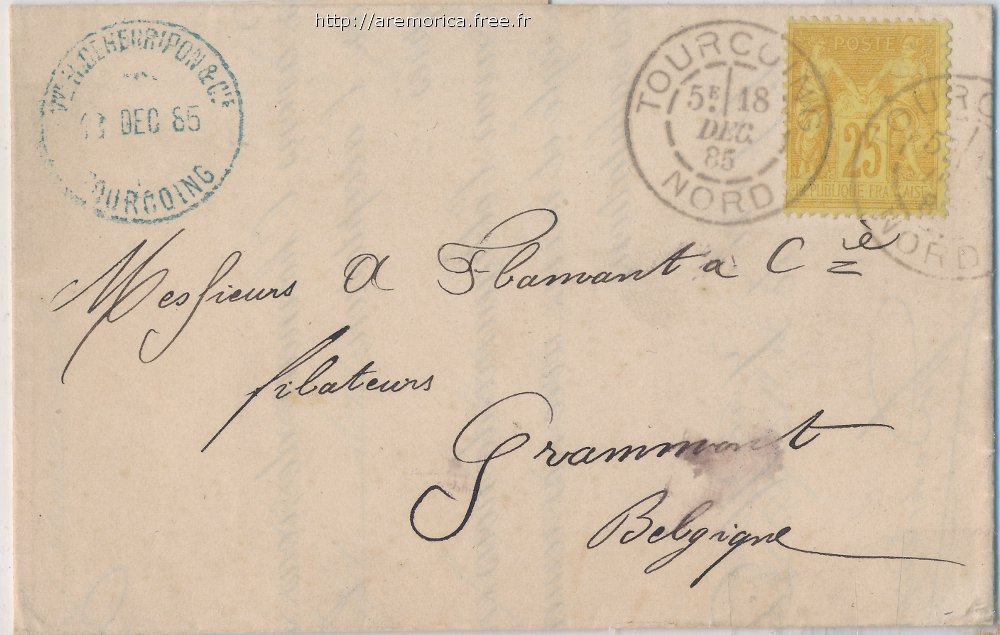 http://aremorica.free.fr
Vve H. DEHERRIPON & Cie
18 DEC 85
TOURCOING
TOURCOING
5E 18
DEC.
85
NORD
POSTE
25
REPUBLIQUE FRANC
TOURCO
NORD
Messieurs A Flamant & Cie
filateurs
Grammont
Belgique